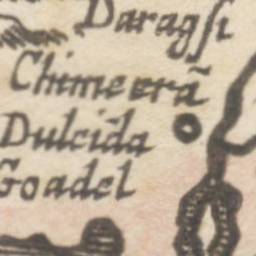 Daragſi
Chimeerã
Dulcida
Goadel